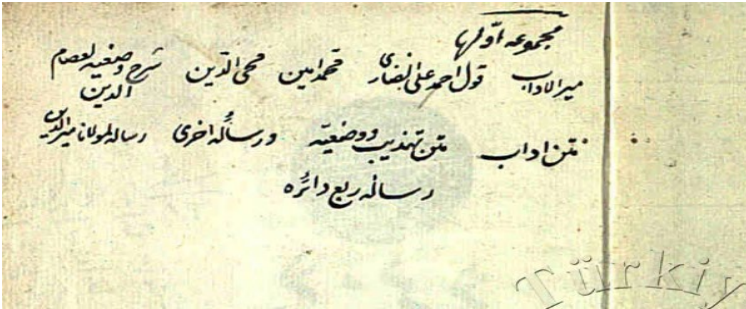 مجموعه اولها
میر الاداب قول احمد علی الفناری محمد امین محی الدین شرح وضعیه لعصام الدین
متن اداب متن تهذیب ووضعیه ورسالهٔ اخری رساله لمولانا میر الدین
رساله ربع دائره
Türkiy